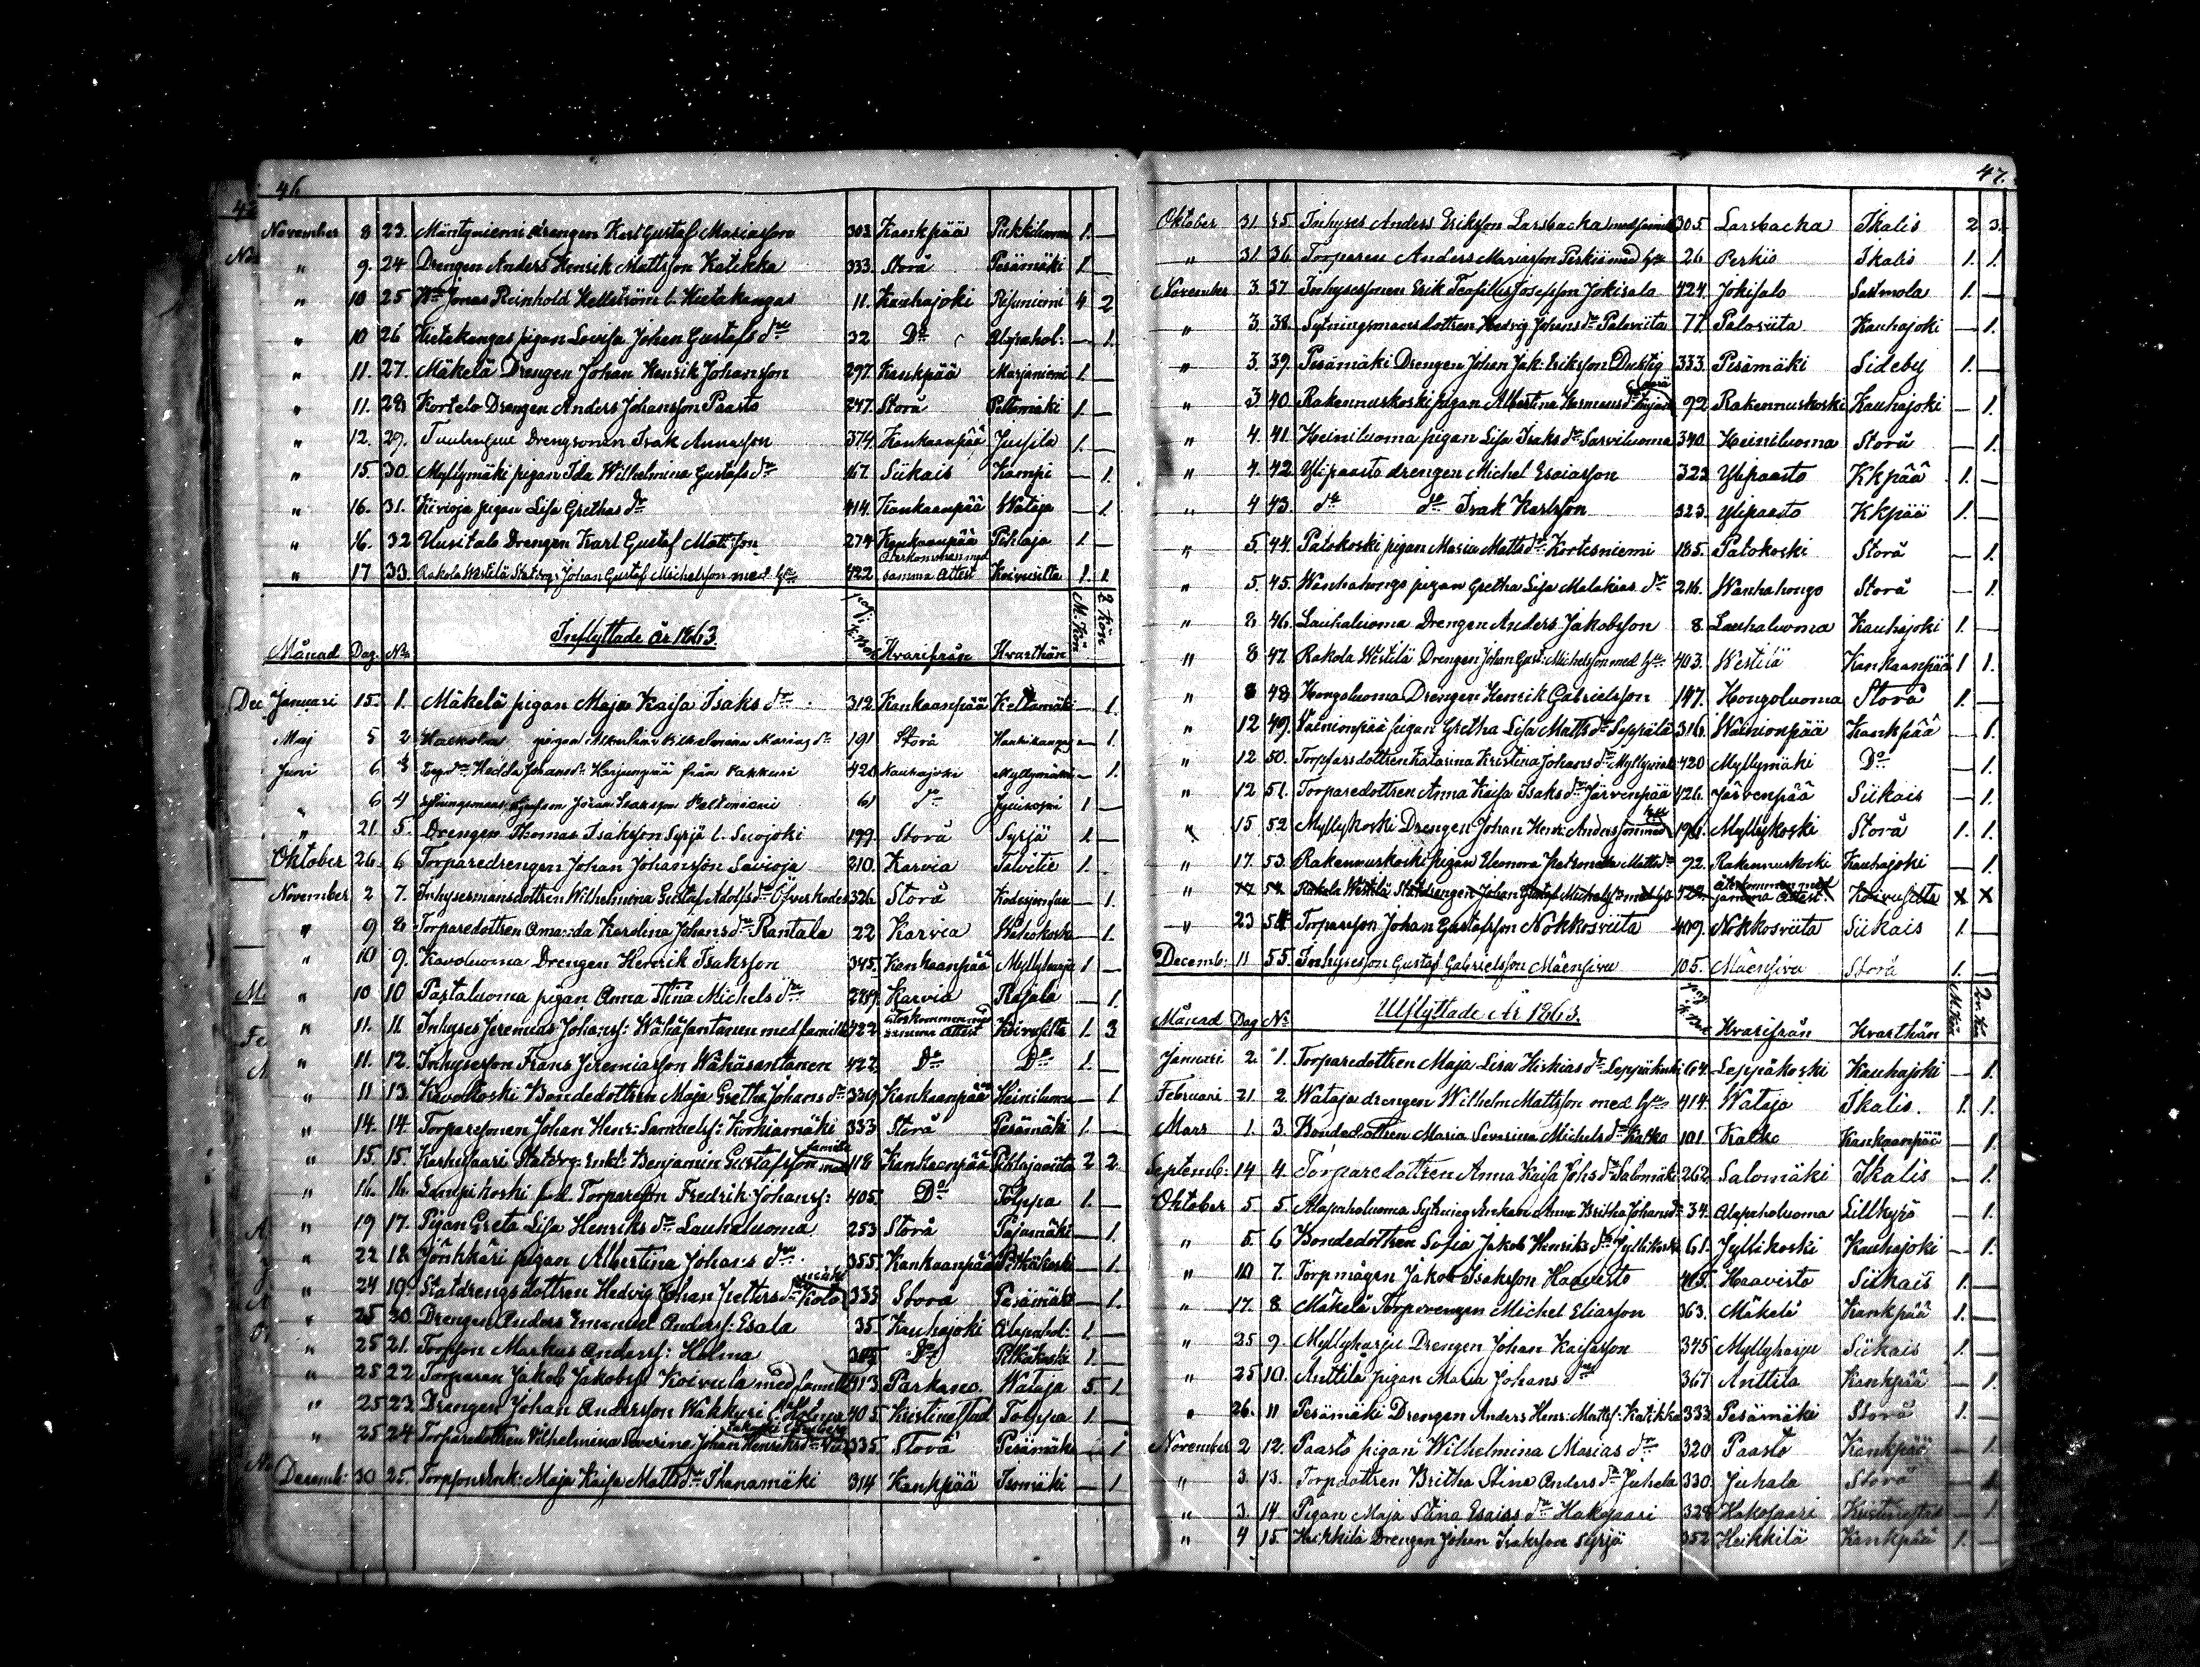 46
November 8 23. Mäntyniemi drengen Karl Gustaf Mariasson 303. Kankpää 1. —
" 9. 24 Drengen Anders Henrik Mattsson Katikka 333. Storå Pesämäki 1. —
" 10 25 Jonas Reinhold Hellström l. Hietakangas 11. Kauhajoki 4 2
" 10 26 Hietakangas pigan Lovisa Johan Gustafs dr 32 Do Alapahol: — 1.
" 11. 27. Mäkelä Drengen Johan Henrik Johansson 297. Kankpää Marjaniemi 1. —
" 11. 28 Kortelo Drengen Anders Johansson Paasto 247. Storå Peltomäki 1. —
" 12. 29. Drengsonen Isak Annasson 374. Kankaanpää Jussila 1. —
" 15. 30. Myllymäki pigan Ida Wilhelmina Gustafs dr 167. Siikais Kampi — 1.
" 16. 31. Kivioja pigan Lisa Grethas dr 414. Kankaanpää Wataja — 1.
" 16. 32 Uusitalo Drengen Karl Gustaf Matts:son 274 Kankaanpää Pohlaja 1. —
" 17 33. Rakola Westilä Statdrg: Johan Gustaf Michelsson med h:u 422 Återkommen med samma Attest Koivusilta 1. 1.
Inflyttade år 1863.
Månad Dag. No pag. i K. Bok Hvarifrån Hvarthän M. Kön Q. Kön
Januari 15. 1. Mäkelä pigan Maja Kaisa Isaks dr 312. Kankaanpää Keltamäki — 1.
Maj 5 2 pigan Wilhelmina Marias dr 191 Storå — 1.
Juni 6 3 Hedda Johans dr Harjunpää från 420 Kauhajoki Myllymäki — 1.
" 6 4 Johan Isaksson Peltoniemi 61 do 1 —
" 21 5. Drengen Thomas Isaksson Syrjä l. Suojoki 199. Storå Syrjä 1. —
Oktober 26. 6 Torparedrengen Johan Johansson Savioja 210. Karvia Talvitie 1. .
November 2 7. Inhysesmansdottren Wilhelmina Gustaf Adolfs dr 326 Storå — 1.
" 9 8. Torparedottren Amanda Karolina Johans dr Rantala 22 Karvia Wahokoski — 1.
" 10 9. Kavoluoma Drengen Henrik Isaksson 345. Kankaanpää Myllyharju 1. —
" 10 10 Pastaluoma pigan Anna Stina Michels dr 289. Karvia Rajala — 1.
" 11. 11. Inhyses Jeremias Johanss: Wähäsantanen med familie 422 återkommen med samma Attest Koivusilta 1. 3
" 11. 12. Inhysesson Frans Jeremiasson Wähäsantanen 422 Do Do 1. —
" 11 13. Kavokoski Bondedottren Maja Gretha Johans dr 339. Kankaanpää Heiniluoma — 1
" 14. 14 Torparesonen Johan Henr: Samuelss: Korhiamäki 333 Storå Pesämäki 1. —
" 15. 15. Karhusaari Statdrg: Enkl: Benjamin Gustafsson med familie 118 Kankaanpää Pihlajaviita 2 2.
" 16. 16. Lampikoski Torpareson Fredrik Johanss: 405. Do Tolppa 1. —
" 19 17. Pigan Greta Lisa Henriks dr Lauhaluoma 253 Storå Pajamäki — 1.
" 22 18. Jönkkäri pigan Albertina Johans dr 355. Kankaanpää Pitkäkoski — 1.
" 24 19. Statdrengsdottren Hedvig Johan Petters dr Koto 333 Storå Pesämäki — 1.
" 25 20 Drengen Anders Emanuel Anderss: Esala 35. Kauhajoki Alapahol: 1. —
" 25 21. Torpson Markus Anderss: Holma Do Pitkäkoski 1. —
" 25 22 Torparen Jakob Jakobss: Koivula med familie 413. Parkano Wataja 5. 1.
" 25 23. Drengen Johan Andersson Wakkuri l. Holma 405. Kristinestad Tolppa 1. —
" 25 24 Torparedottren Wilhelmina Severina Johan Henriks dr 335. Storå Pesämäki — 1
Decemb: 30 25. Maja Kaisa Matts dr Ihanamäki 314 Kankpää Isomäki — 1
47.
Oktober 31. 35. Inhyses Anders Eriksson Larsbacka med familie 305. Larsbacka Ikalis 2 3.
" 31 36. Torparen Anders Mariasson Perkiö med h:u 26 Perkiö Ikalis 1. 1.
November 3. 37. Inhysessonen Erik Teofilus Josefsson Jokisalo 424. Jokisalo Sastmola 1. —
" 3. 38. Sytningsmansdottren Hedvig Johans dr Paloviita 77. Paloviita Kauhajoki — 1.
" 3. 39. Pesämäki Drengen Johan Jak: Eriksson Duktig 333. Pesämäki Sideby 1. —
" 3 40. Rakennuskoski pigan Albertina Hermans dr 92 Rakennuskoski Kauhajoki — 1.
" 4. 41. Heiniluoma pigan Lisa Isaks dr Sarviluoma 340. Heiniluoma Storå — 1.
" 4. 42. Ylipaasto drengen Michel Esaiasson 323. Ylipaasto Kkpää 1. —
" 4 43. do do Isak Karlsson 323. Ylipaasto Kkpää 1. —
" 5. 44. Patokoski pigan Maria Matts dr Kortesniemi 185. Patokoski Storå — 1.
" 5. 45. Wanhahongo pigan Gretha Lisa Malakias dr 216. Wanhahongo Storå — 1.
" 8 46. Lauhaluoma Drengen Anders Jakobsson 8. Lauhaluoma Kauhajoki 1. —
" 8 47. Rakola Westilä Drengen Johan Gust: Michelsson med h:u 403. Westilä Kankaanpää 1 1.
" 8 48. Hongoluoma Drengen Henrik Gabrielsson 197. Hongoluoma Storå 1. —
" 12 49. Wäinionpää pigan Gretha Lisa Matts dr Seppälä 316. Wäinionpää Kankpää — 1.
" 12 50. Torparsdottren Katarina Kristina Johans dr Myllymäki 420 Myllymäki Do — 1.
" 12 51. Torparedottren Anna Kaisa Isaks dr Järvenpää 126. Järvenpää Siikais — 1.
" 15 52 Myllykoski Drengen Johan Henr: Andersson med h:u 196. Myllykoski Storå 1. 1.
" 17. 53. Rakennuskoski pigan Eleonora Matts dr 92. Rakennuskoski Kauhajoki — 1.
" 17 54. Rakola Westilä Statdrengen Johan Gustaf Michelsson med h:u 422. återkommen med samma Attest. Koivusilta x x
" 23 54. Torpareson Johan Gustafsson Nokkosviita 409. Nokkosviita Siikais 1. —
Decemb: 11 55. Inhysesson Gustaf Gabrielsson Mäensivu 105. Mäensivu Storå 1. —
Utflyttade År 1863.
Månad Dag No pag. i K. Bok Hvarifrån Hvarthän M. Kön Qv. Kön
Januari 2. 1. Torparedottren Maja Lisa Hiskias dr Leppäkoski 64. Leppäkoski Kauhajoki — 1.
Februari 21 2. Wataja drengen Wilhelm Mattsson med h:u 414. Wataja Ikalis. 1. 1.
Mars 1. 3. Bondedottren Maria Severina Michels dr Katko 101. Katko Kankaanpää — 1.
Septemb: 14 4. Torparedottren Anna Kaisa Johs dr Salomäki 262. Salomäki Ikalis — 1.
Oktober 5 5. Alapaholuoma Sytningsenkan Anna Britha Johans dr 34. Alapaholuoma Lillkyro — 1.
" 5. 6 Bondedottren Sofia Jakob Henriks dr Jyllikoski 61. Jyllikoski Kauhajoki — 1.
" 10 7. Torpmågen Jakob Isaksson Haavisto 415. Haavisto Siikais 1. —
" 17. 8 Mäkelä Torpdrengen Michel Eliasson 363. Mäkelä Kankpää 1. —
" 25 9. Myllyharju Drengen Johan Kaisasson 345 Myllyharju Siikais 1. —
" 25 10. Anttila pigan Maria Johans dr 367 Anttila Kankpää — 1.
" 26. 11 Pesämäki Drengen Anders Henr: Mattss: Katikka 333. Pesämäki Storå 1. —
November 2 12. Paasto pigan Wilhelmina Marias dr 320. Paasto Kankpää — 1.
" 3. 13. Torpdottren Britha Stina Anders dr Juhala 330. Juhala Storå — 1
" 3. 14. Pigan Maja Stina Esaias dr Hakosaari 328 Hakosaari Kristinestad — 1.
" 4 15. Heikkilä Drengen Johan Isaksson Syrjä 352 Heikkilä Kankpää 1. —